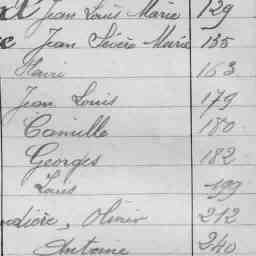 Jean Louis Marie 129
Jean Sévère Marie 135
163
Jean Louis 179
Camille 180
Georges 182
Louis 199
Olivier 212
Antoine 240